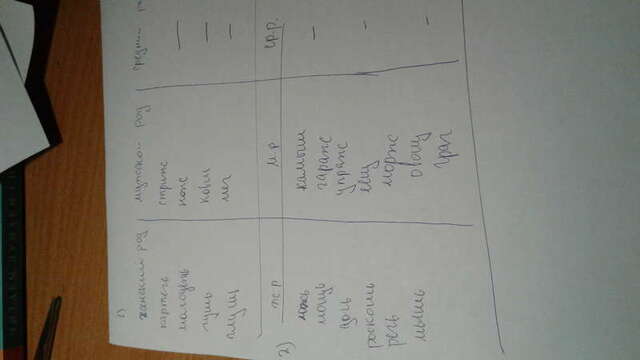 1)
женский род мужской род средний
картечь стриж
молодёжь нож —
тушь ковш —
плющ меч —
2) ж.р м.р ср.р.
ложь камыш —
мощь гараж
дочь упряж
роскошь ёрш —
речь морж
мышь овощ —
грач